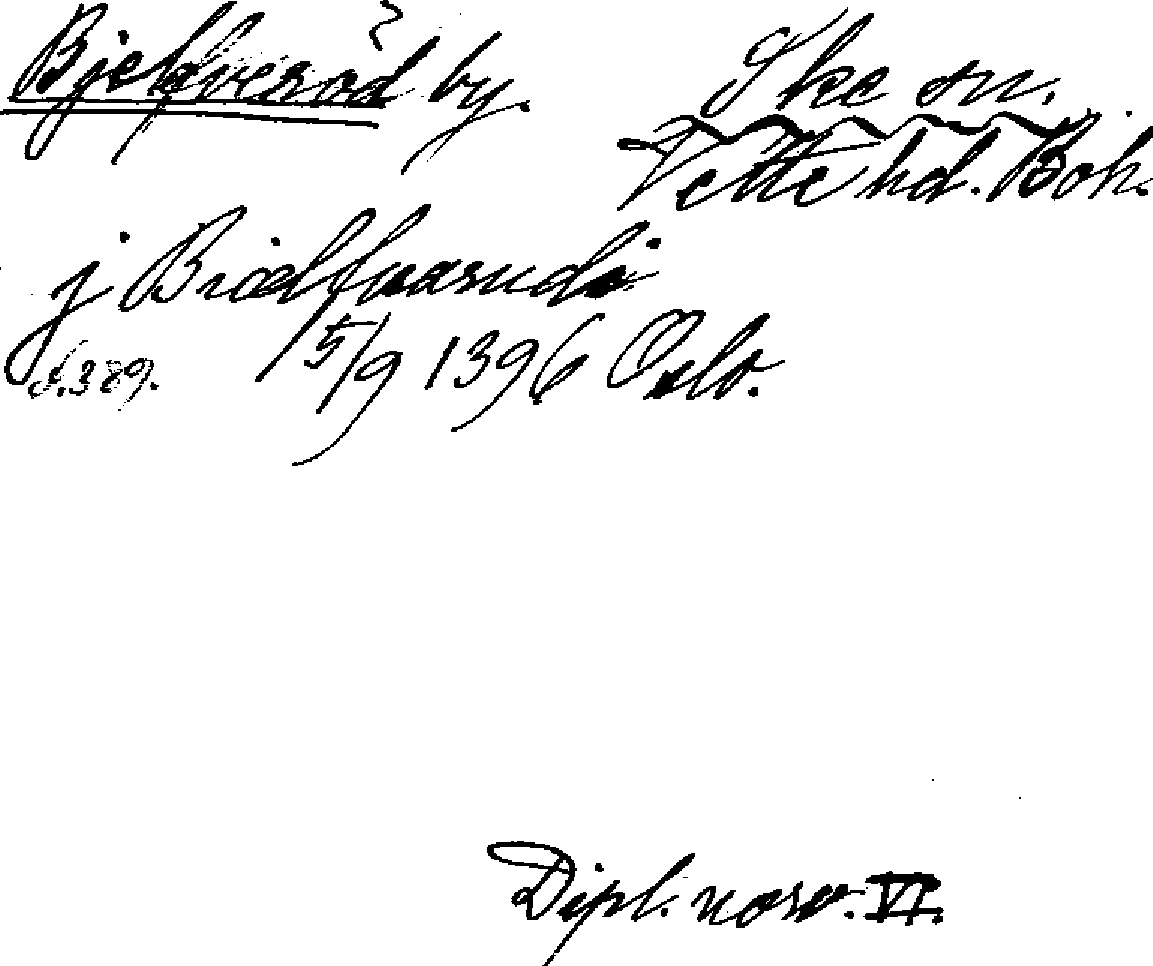 Bjelfveröd by. Skee sn.
Vette hd. Boh.
j Biælfuarudi
s. 389. 15/9 1396 Oslo.
Dipl. norv. VI.